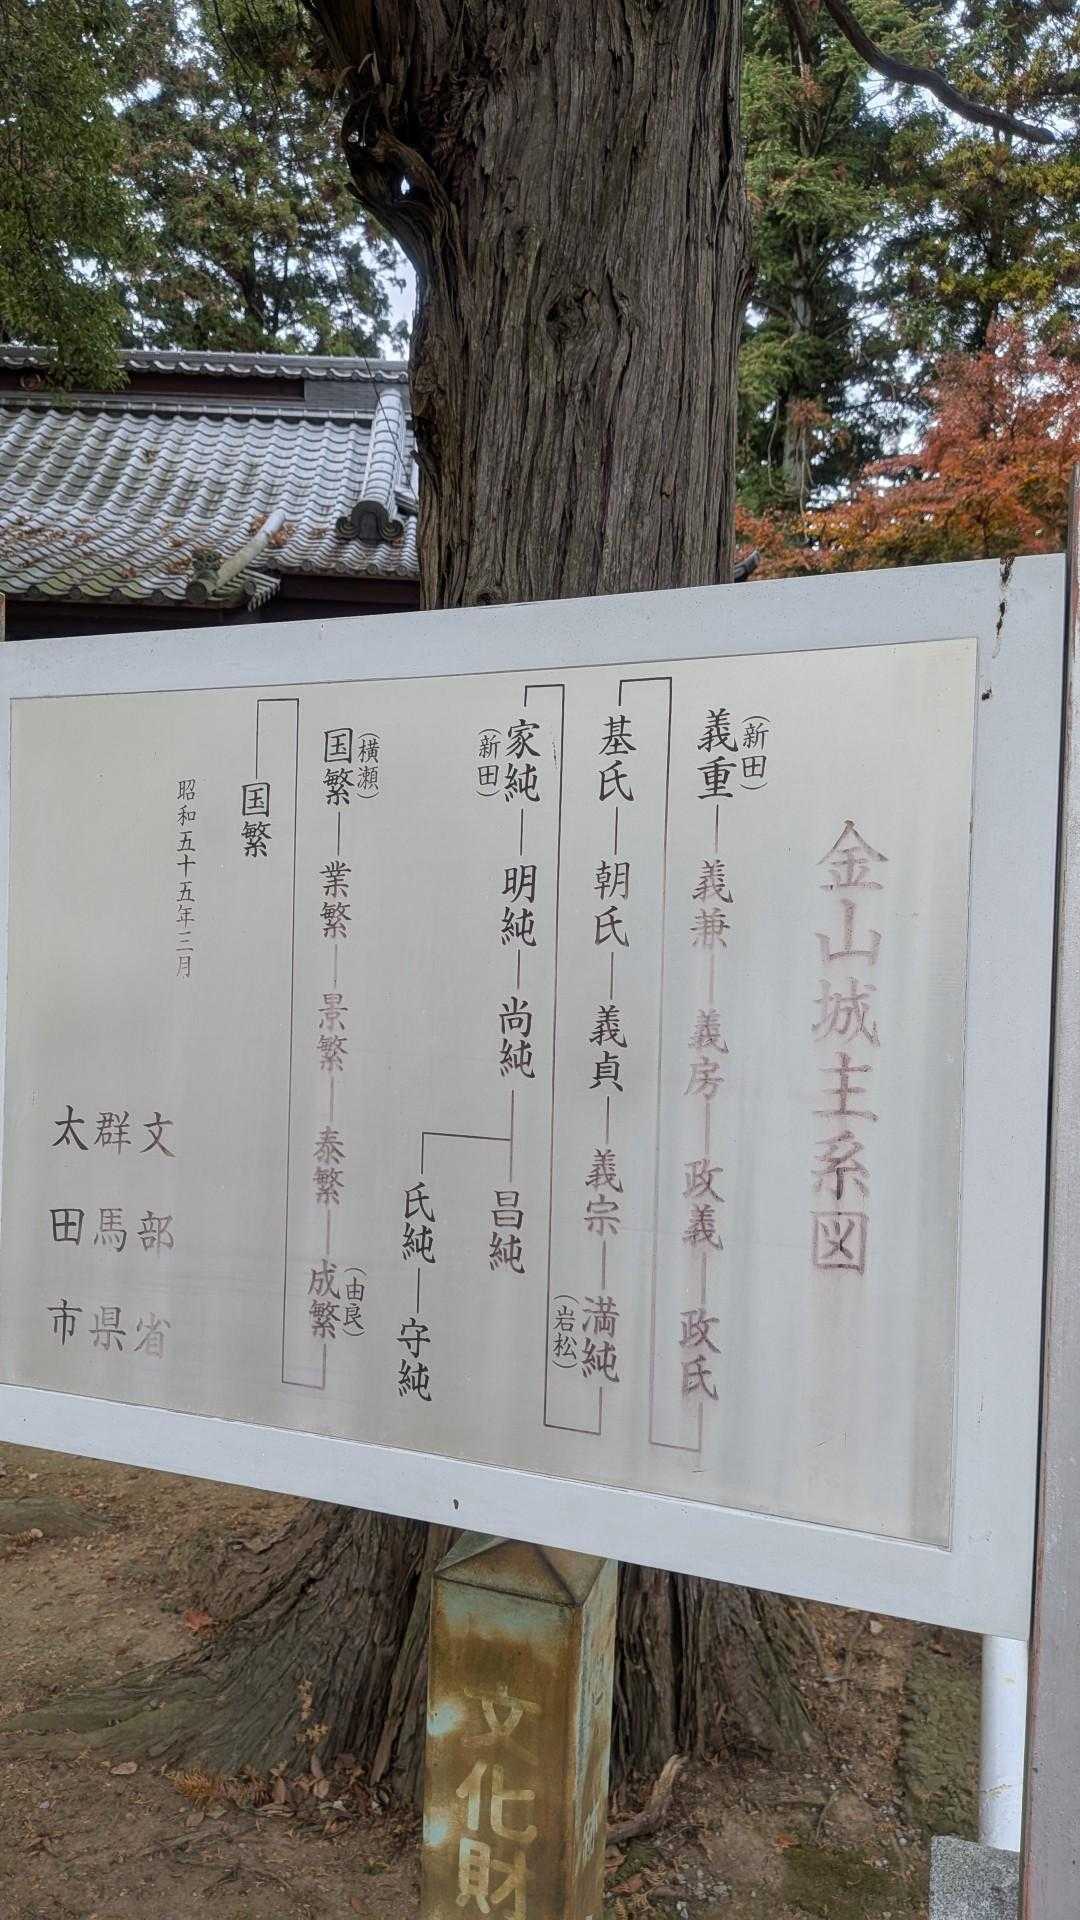 金山城主系図
(新田)
義重―義兼―義房―政義―政氏
基氏―朝氏―義貞―義宗―満純
(岩松)
家純―明純―尚純―昌純
(新田)
氏純―守純
(横瀬)
国繁―業繁―景繁―泰繁―成繁
(由良)
国繁
昭和五十五年三月
文部省
群馬県
太田市
文化財